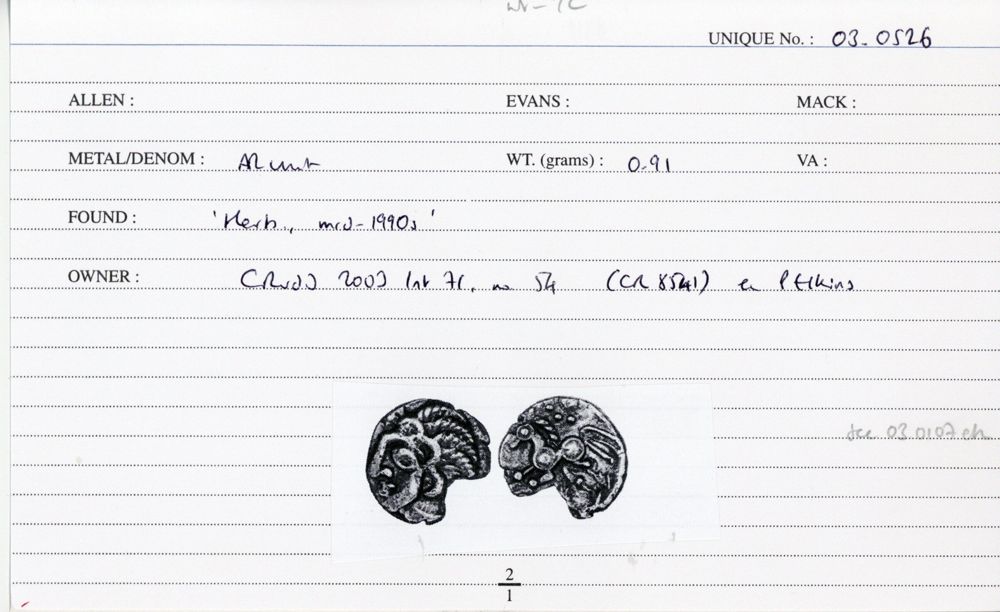 UNIQUE No. : 03-0526
ALLEN : EVANS : MACK :
METAL/DENOM : AR unit WT. (grams) : 0-91 VA :
FOUND : 'Herts., mid-1990s'
OWNER : 2003 no 54 (CR 8541) ex P Elkins
03.0107
2
1